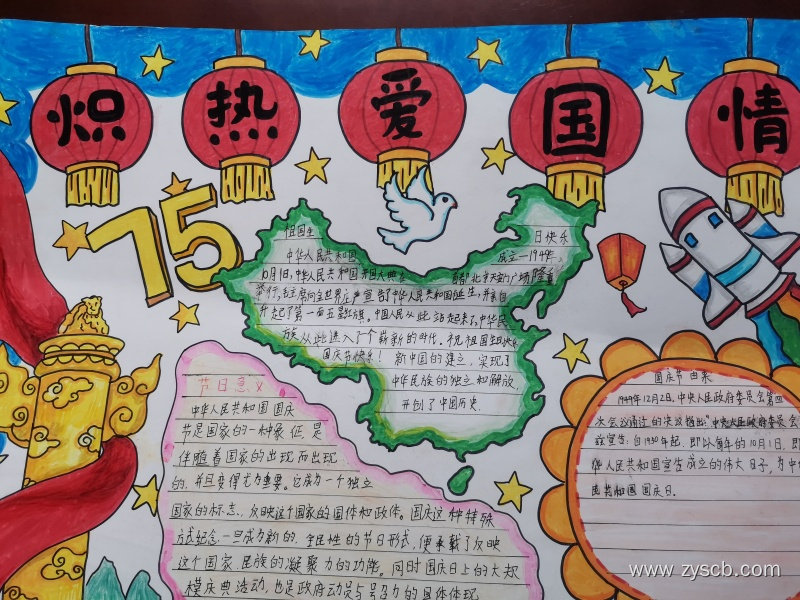 炽热爱国情
75
祖国生日快乐
中华人民共和国成立于1949年
10月1日,中华人民共和国开国大典在首都北京天安门广场隆重
举行,毛主席向全世界庄严宣告了中华人民共和国诞生,并亲自
升起了第一面五星红旗。中国人民从此站起来了,中华民
族从此进入了个崭新的时代。祝祖国生日快乐
国庆节快乐! 新中国的建立,实现了
中华民族的独立和解放
开创了中国历史.
节日意义
中华人民共和国国庆
节是国家的一种象征,是
伴随着国家的出现而出现
的,并且变得尤为重要。它成为一个独立
国家的标志,反映这个国家的国体和政体。国庆这种特殊
方式纪念一旦成为新的、全民性的节日形式,便承载了反映
这个国家、民族的凝聚力的功能。同时国庆日上的大规
模庆典活动,也是政府动员与号召力的具体体现
国庆节由来
1949年12月2日,中央人民政府委员会第四
次会议通过的决议指出:"中央人民政府委员会
兹宣告:自1950年起,即以每年的10月1日,即
华人民共和国宣告成立的伟大日子,为中
民共和国国庆日.
www.zyscb.com